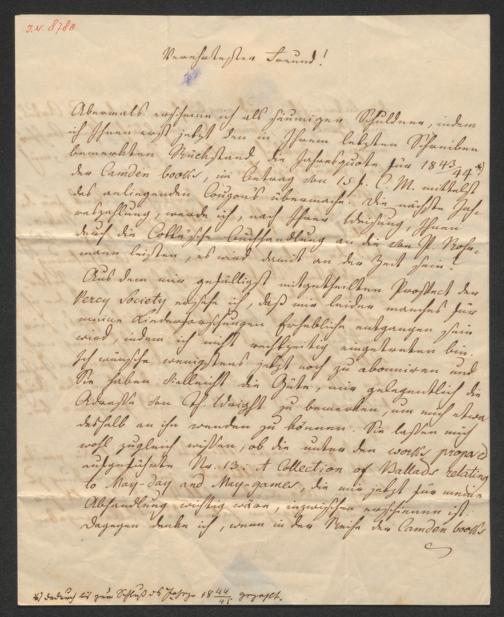 I.N. 8780
Verehrtester Freund!
Abermals erscheine ich als säumiger Schuldner, indem
ich Ihnen erst jetzt den in Ihrem letzten Schreiben
bemerkten Rückstand, die Jahresquote für 1843/44 *)
der Camden books, im Betrag von 15 f. C. M. mittelst
des anliegenden Coupons übermache. Die nächste Jah-
reszahlung, werde ich, nach Ihrer Weisung, Ihnen
durch die Buchhandlung an die von P. Roh-
mann leisten, es wird damit an der Zeit sein.
Aus dem mir gefälligst mitgetheilten Prospect der
Percy Society ersehe ich, daß mir leider manches für
meine Liederforschungen Erhebliche entgangen sein
wird, indem ich nicht rechtzeitig eingetreten bin.
Ich wünsche wenigstens jetzt noch zu abonniren und
Sie haben vielleicht die Güte, mir gelegentlich die
Adresse von Th. Wright zu bemerken, um mich etwa
deshalb an ihn wenden zu können. Sie lassen mich
wohl zugleich wissen, ob die unter den works proposed
aufgeführte Nr. 13. A Collection of Ballads relating
to May-day and May-games, die mir jetzt für meine
Abhandlung wichtig wäre, inzwischen erschienen ist.
Dagegen denke ich, wenn in der Reihe der Camden books
*) dadurch bis zum Schluß des Jahrs 1844/45 gezahlt.